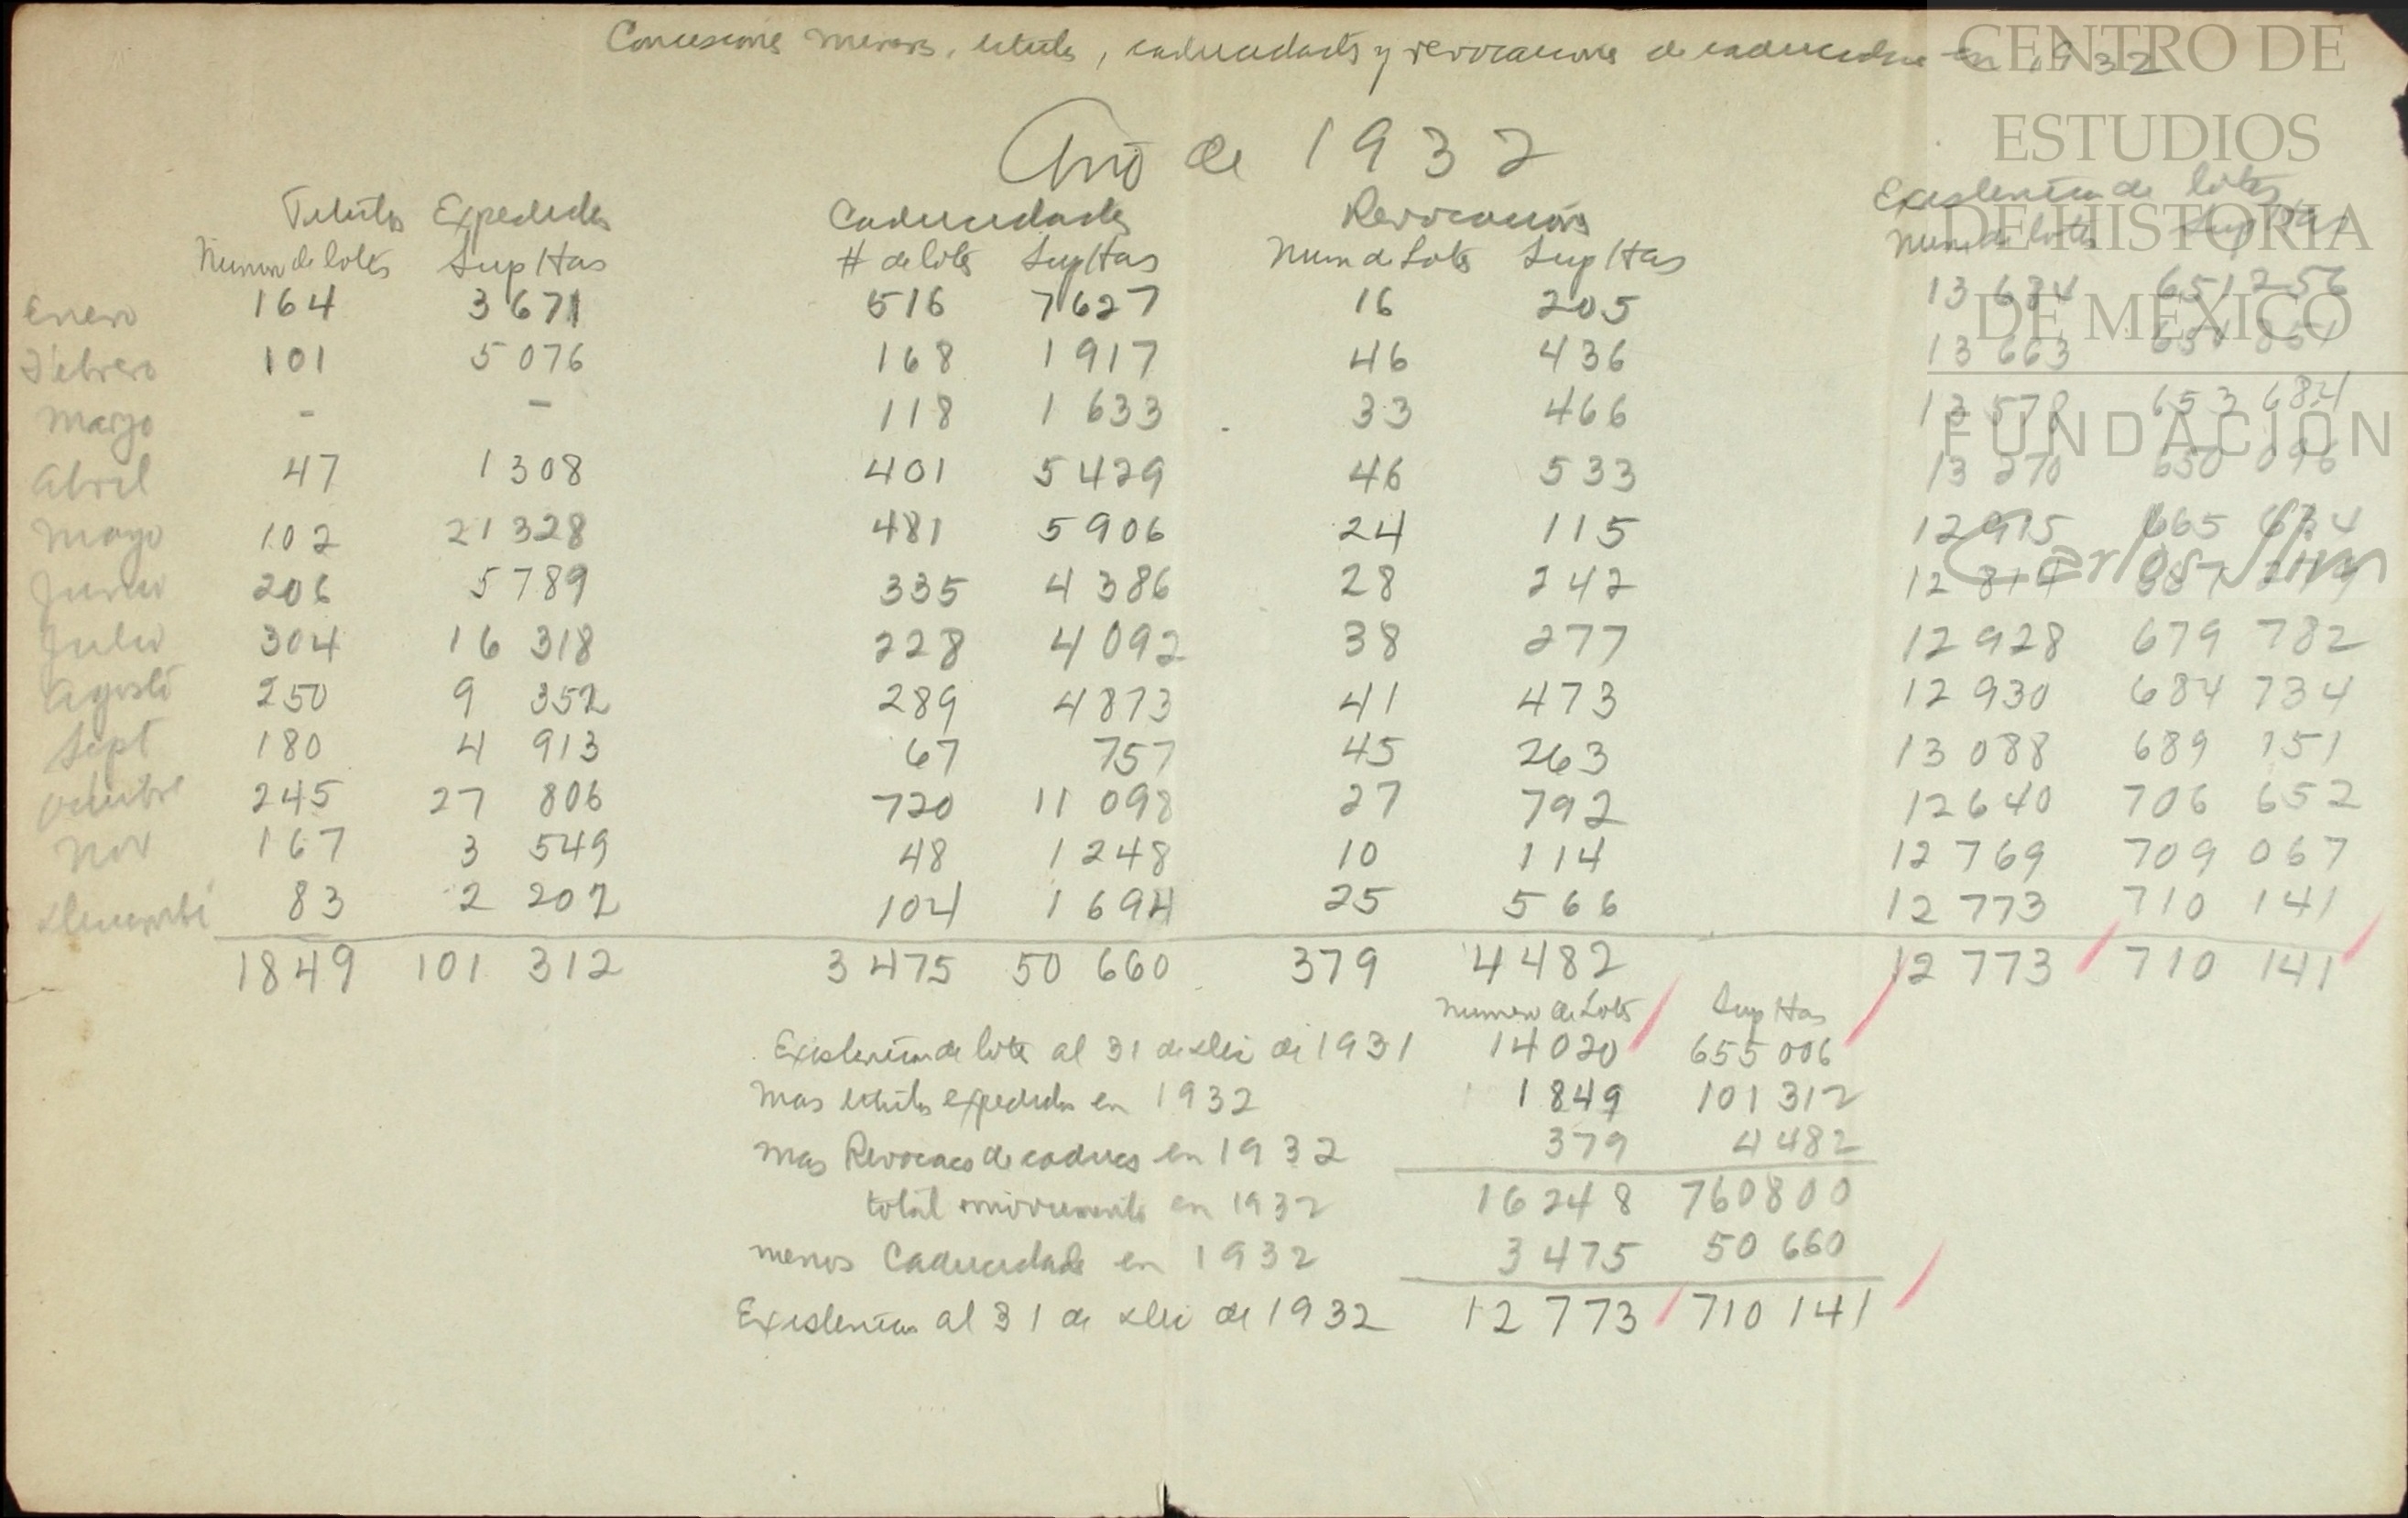 Concesiones mineras, titulos, caducidades y revocaciones de caducidades en 1932
CENTRO DE
ESTUDIOS
DE HISTORIA
DE MEXICO
FUNDACION
Carlos Slim
Año de 1932
Titulos Expedidos Caducidades Revocacions Existencia de lotes
Numero de lotes Sup Has # de lotes Sup Has Num de Lotes Sup Has Num de lotes Sup Has
Enero 164 3 671 516 7627 16 205 13 684 651 256
Febrero 101 5 076 168 1 917 46 436 13 663 654 851
Marzo - - 118 1 633 33 466 13 578 653 684
Abril 47 1 308 401 5 429 46 533 13 270 650 096
Mayo 102 21 328 481 5 906 24 115 12 915 665 634
Junio 206 5 789 335 4 386 28 242 12 814 667 279
Julio 304 16 318 228 4 092 38 277 12 928 679 782
Agosto 250 9 352 289 4 873 41 473 12 930 684 734
Sept 180 4 913 67 757 45 263 13 088 689 151
Octubre 245 27 806 720 11 098 27 792 12 640 706 652
Nov 167 3 549 48 1 248 10 114 12 769 709 067
Diciembre 83 2 202 104 1 694 25 566 12 773 710 141
1849 101 312 3 475 50 660 379 4 482 12 773 710 141
Numero de Lotes Sup Has
Existencia de lotes al 31 de Dic de 1931 14 020 655 006
Mas titulos expedidos en 1932 1 849 101 312
Mas Revocacs de caducs en 1932 379 4 482
total movimiento en 1932 16 248 760 800
menos Caducidads en 1932 3 475 50 660
Existencias al 31 de Dic de 1932 12 773 710 141